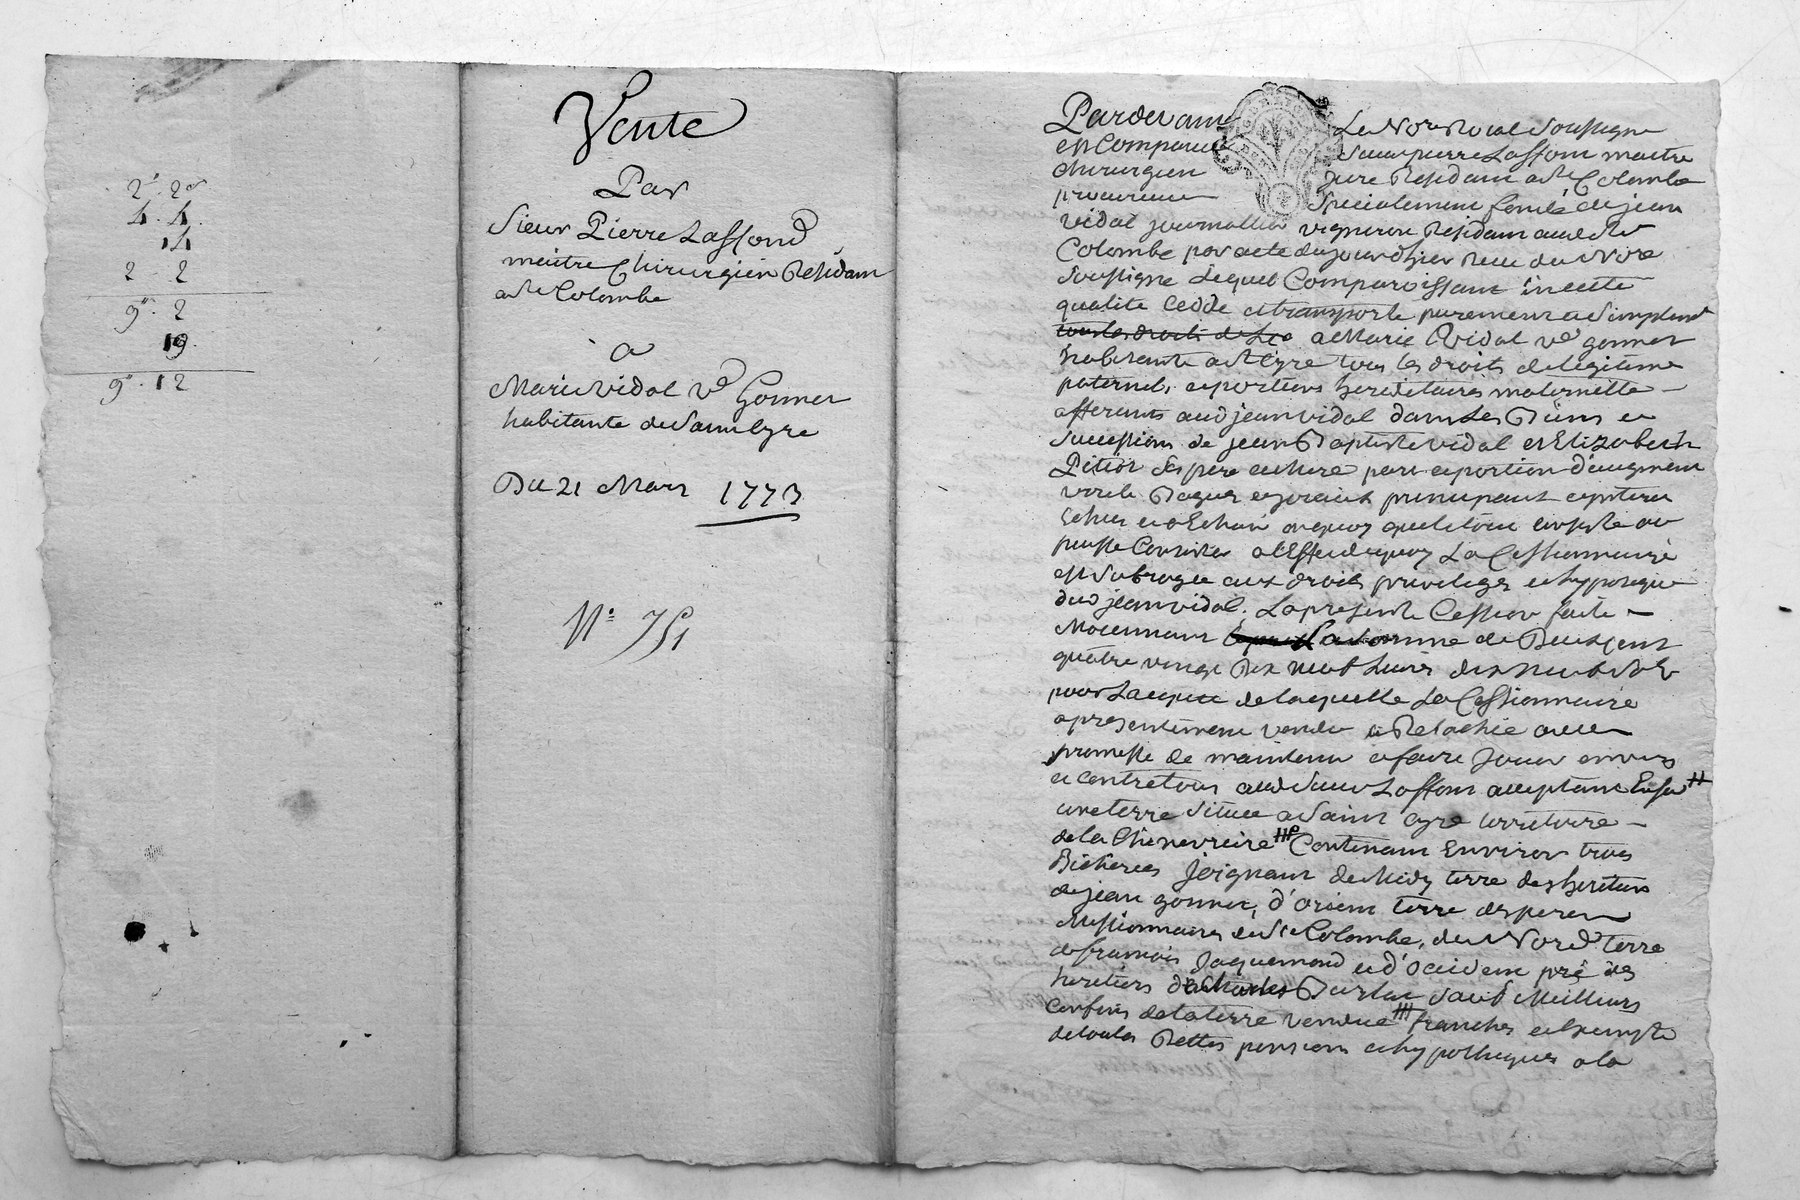 2 2
4 4
14
2 2
9 2
19
9 12
Vente
Par
Sieur Pierre Laffond
maitre Chirurgien Residam
a Ste Colombe
a
Marie vidal ve Gonnet
habitante de Saint Cyre
Du 21 Mars 1773
N° 751
Pardevant Le Nore Roial Soussigne
est Comparu Sieur pierre Laffont maitre
chirurgien Jure Residam a Ste Colombe
procureur Specialement fondé de jean
vidal journallier vigneron Residam aud Ste
Colombe par acte du jourdhier Recu du Nore
Soussigne Lequel Comparoissant en cette
qualite Cedde et transporte purement et Simplemt
tous les droits de a Marie vidal ve gonnet
habitante a St Cyre tous les droits de legitime
paternels et portions hereditaires maternelle
afferants aud jean vidal dans Les Biens et
Successions de jean Baptiste vidal et Elizabeth
Pitiot Ses pere et mere part et portion d'augment
principaux et
Echus et a Echoir en quoy que le tout consiste ou
puisse Consister a l'Effet de quoy La Cessionnaire
est Subrogee aux droits privileges et hypoteque
dud jean vidal. La presente Cession faite
Moiennant La somme de Deux cent
quatre vingt Dix neuf Livres dix neuf sols
pour de laquelle La Cessionnaire
a presentement vendu et Relachée avec
promesse de maintenir et faire Jouir envers
et contre tous aud Sieur Laffont acceptant
une terre Situee a Saint Cyre territoire
de la Chenevreire Contenant Environ trois
Bicherées Joignant de Midy terre des heritiers
de jean gonnet, d'orient terre des peres
Missionnaires de Ste Colombe, de Nord terre
de francois Jaquemond et d'occident pré des
heretiers de Charles Sauf Meilliurs
Confins de la terre vendue franche et Exempte
de toutes Dettes pensions et hypotheques a la